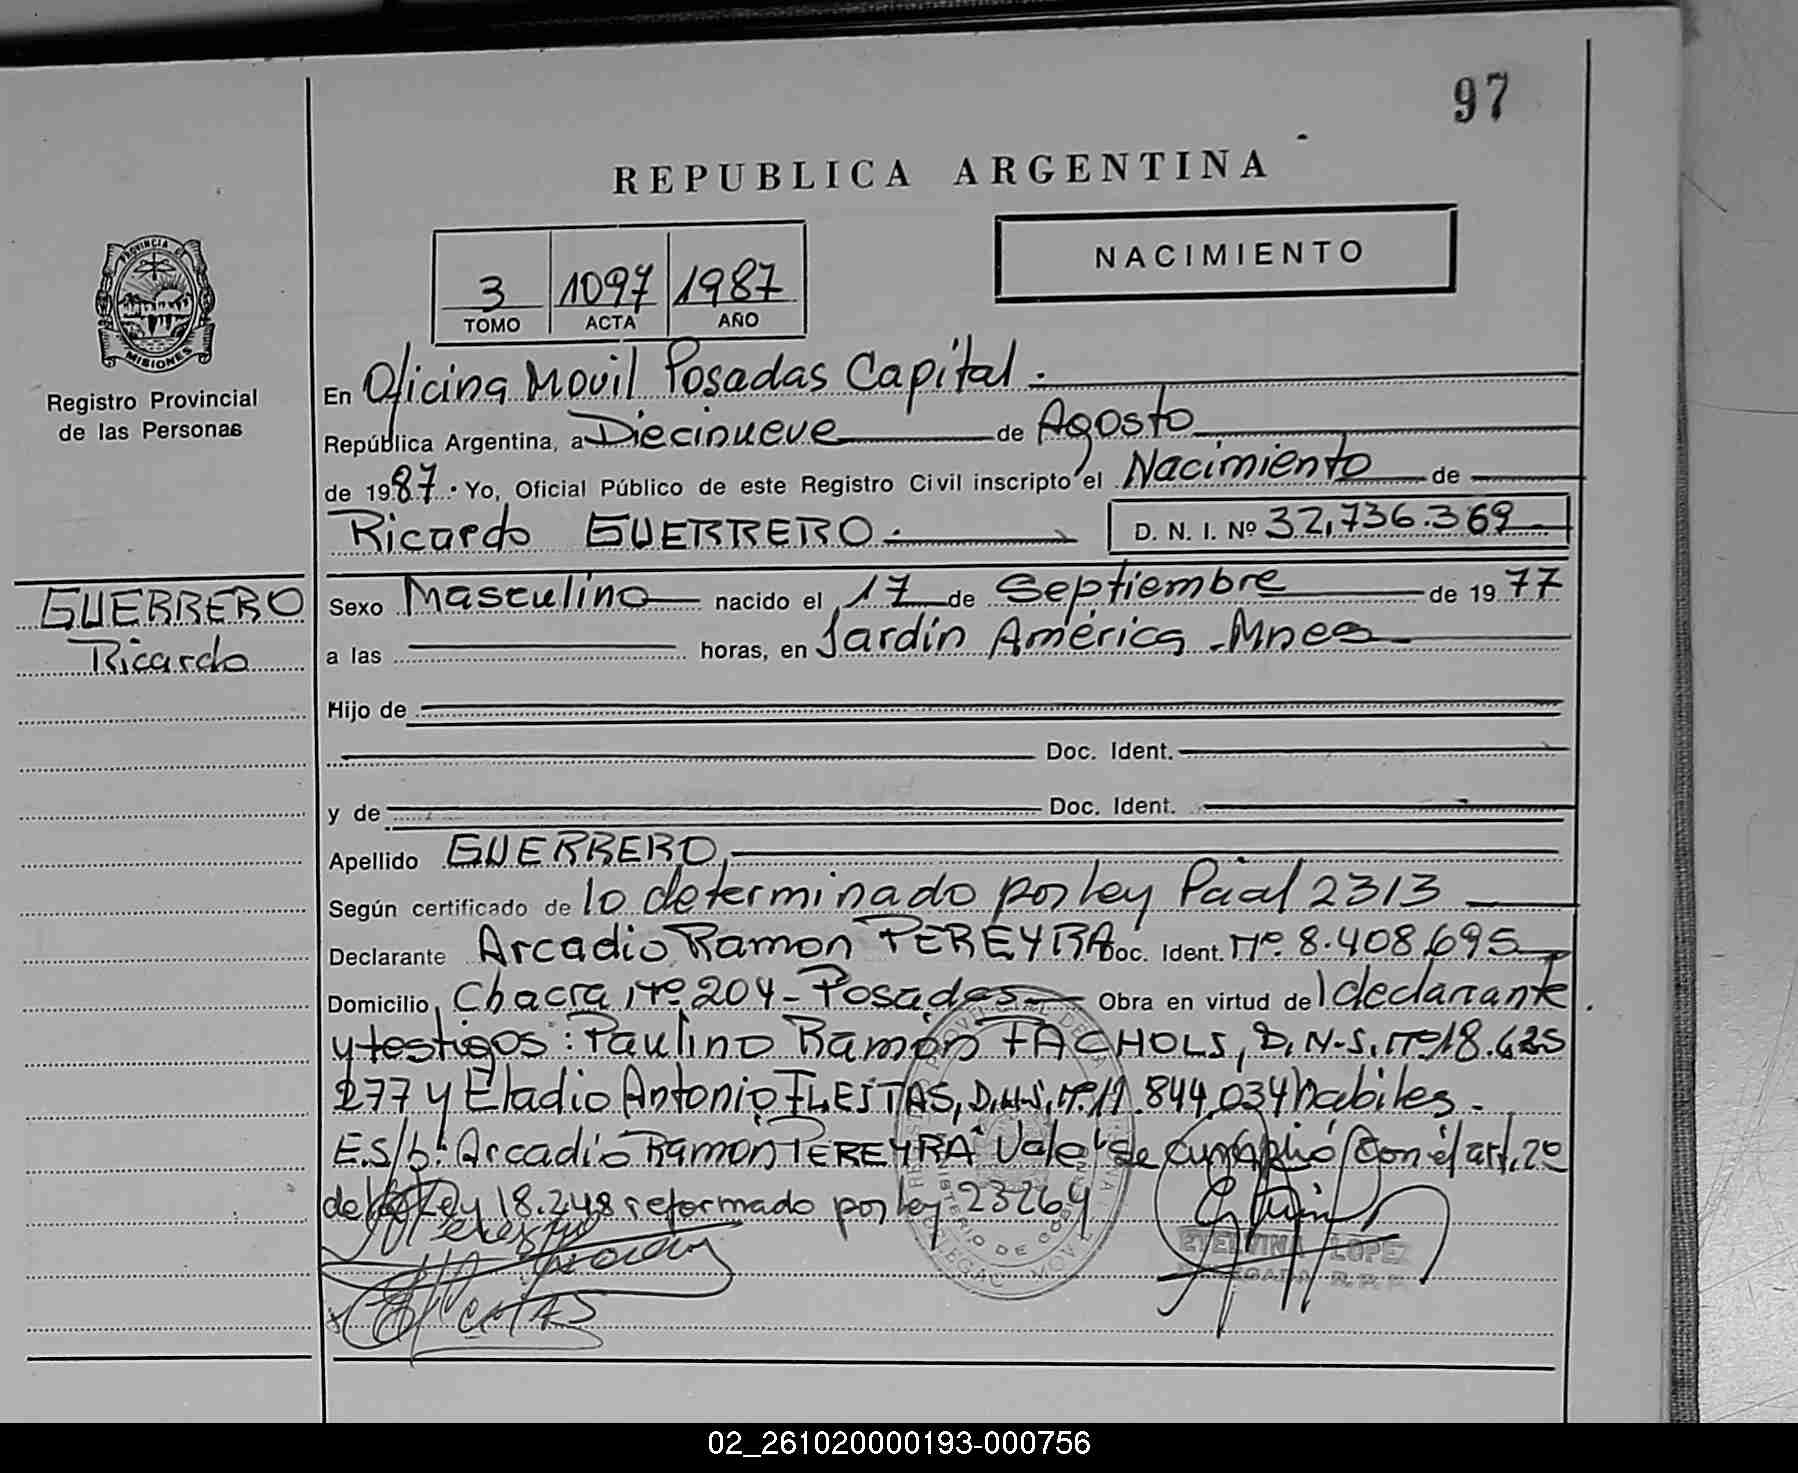 97
REPUBLICA ARGENTINA
NACIMIENTO
3 1097 1987
TOMO ACTA AÑO
PROVINCIA DE
MISIONES
Registro Provincial
de las Personas
En Oficina Movil Posadas Capital.
República Argentina, a Diecinueve de Agosto
de 1987. Yo, Oficial Público de este Registro Civil inscripto el Nacimiento de
Ricardo GUERRERO D. N. I. Nº 32,736.369
GUERRERO
Ricardo
Sexo Masculino nacido el 17 de Septiembre de 1977
a las horas, en Jardín América - Mnes
Hijo de
Doc. Ident.
y de Doc. Ident.
Apellido GUERRERO,
Según certificado de lo determinado por ley Pcial 2313
Declarante Arcadio Ramon PEREYRA Doc. Ident. Nº. 8.408.695
Domicilio Chacra, Nº 204 - Posadas Obra en virtud del declarante
y testigos: Paulino Ramón FACHOLS, Nº 18.625
277 y Eladio Antonio FLEITAS, Nº 11.844.034 habiles.
E.S/b: Arcadio Ramon PEREYRA Vale "se cumplió con el art. 2º
de Ley 18.248 reformado por ley 23264
ETELVINA LOPEZ
DELEGADA R. P. P.
02_261020000193-000756